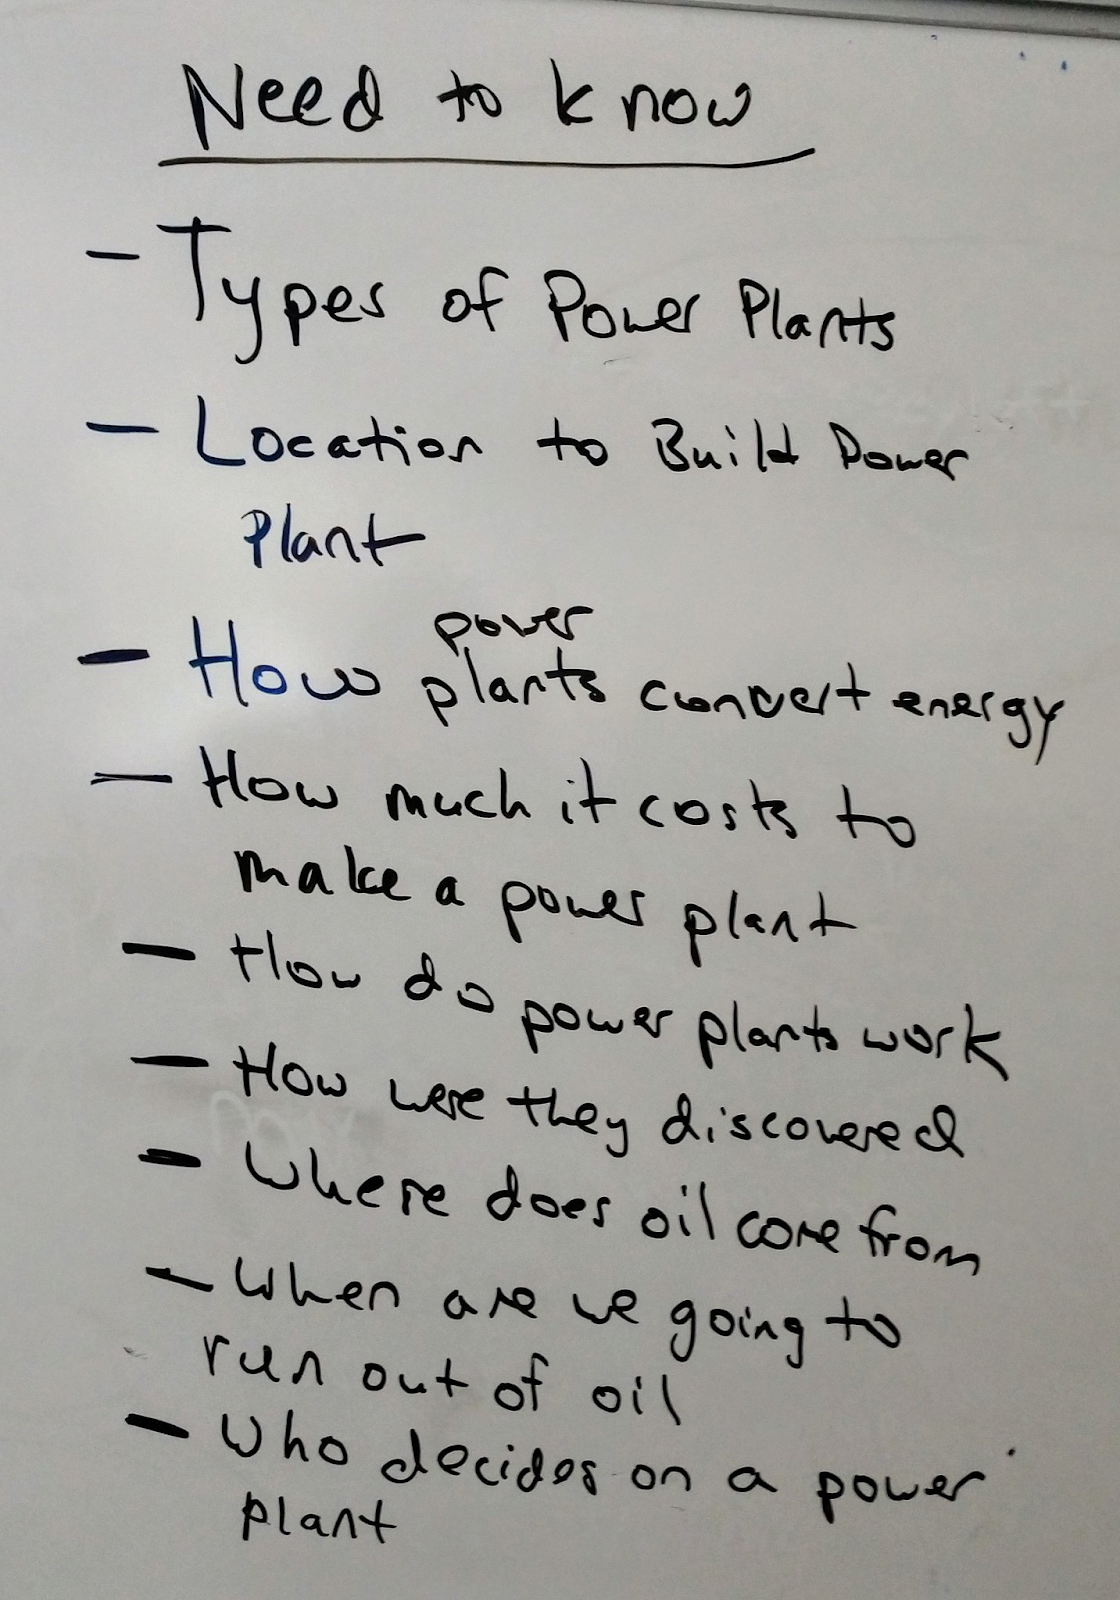 Need to know
- Types of Power Plants
- Location to Build Power
Plant
- How power plants convert energy
- How much it costs to
make a power plant
- How do power plants work
- How were they discovered
- Where does oil come from
- When are we going to
run out of oil
- Who decides on a power
plant